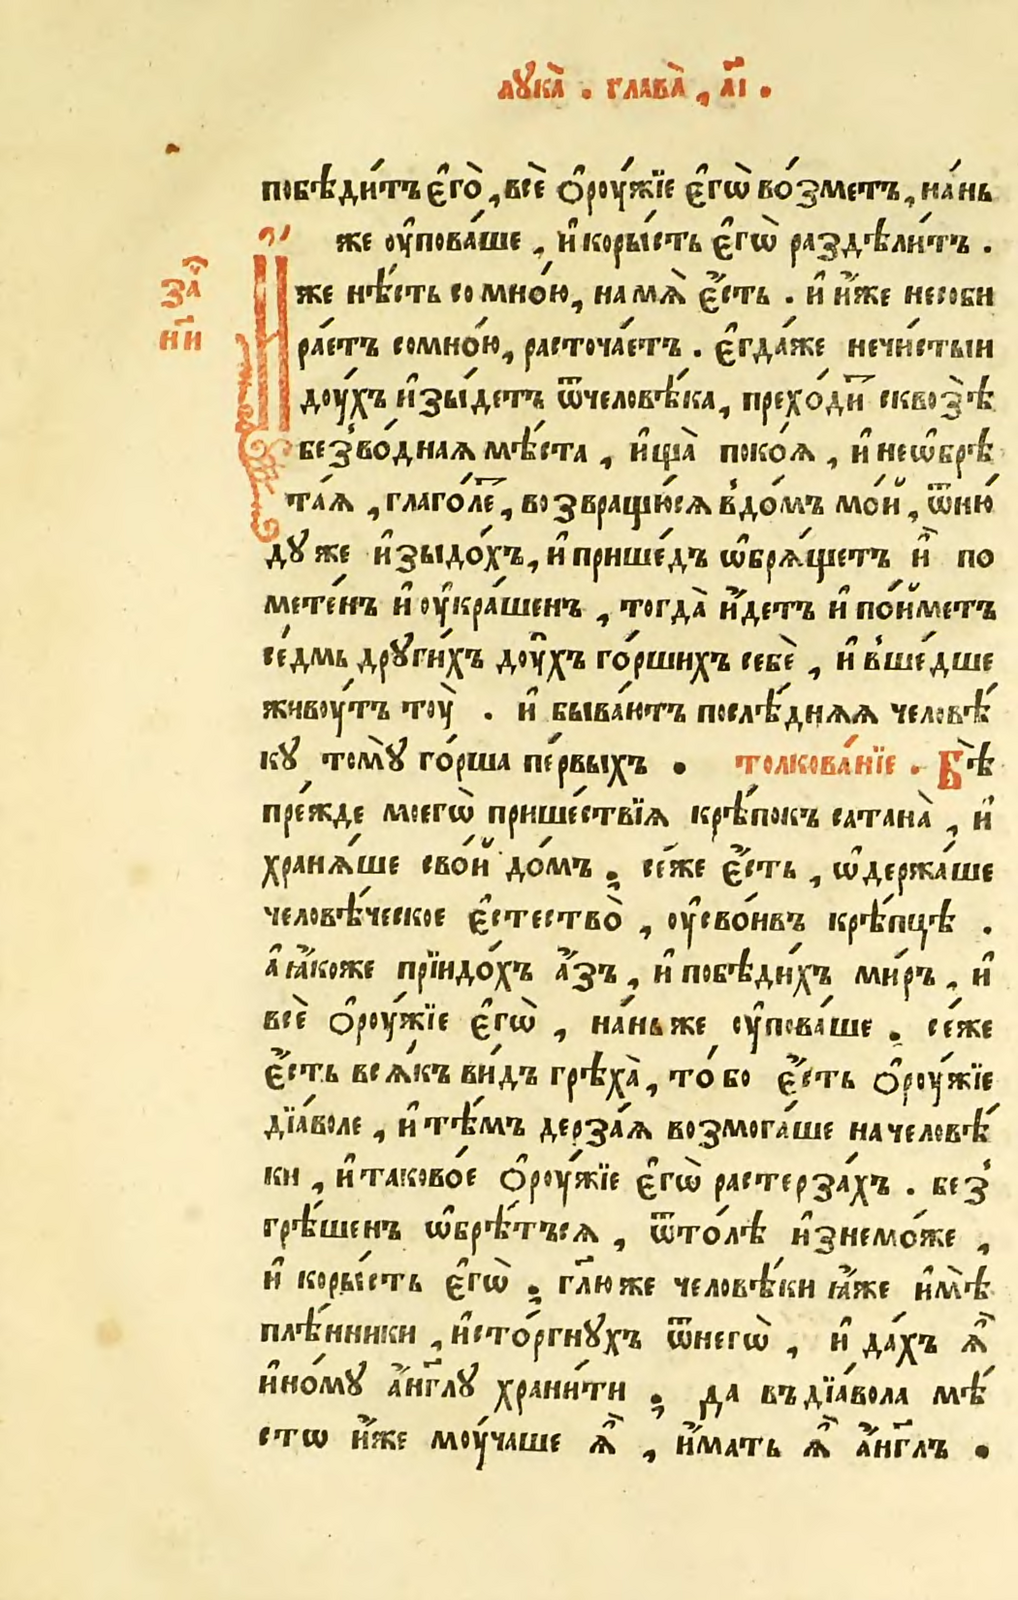 лꙋка̀ . глава̀ , а҃і .
побѣди́тъ є҆го̀ , всѐ ѻ҆роу́жїе є҆гѡ̀ во́зметъ , на́нь
же оу҆пова́ше , и҆ коры́сть є҆гѡ̀ раздѣли́тъ .
за҆
н҃и
И҆́же нѣ́сть со мно́ю , на мѧ̀ є҆́сть . и҆ и҆́же несоби
ра́етъ сомно́ю , расточа́етъ . є҆гда́же нечи́стыи
доу́хъ и҆зы́детъ ѿчеловѣ́ка , прехо́ди сквозѣ̀
безво́днаѧ мѣ́ста , и҆ща̀ поко́ѧ , и҆ неѡ҆брѣ
та́ѧ , глаго́ле , возвращю́сѧ вдо́мъ мо́й , ѿню́
дꙋ же и҆зыдо́хъ , и҆ прише́дъ ѡ҆брѧ́щетъ и҆̀ по
мете́нъ и҆ оу҆кра́шенъ , тогда̀ и҆́детъ и҆ по́йметъ
се́дмь дрꙋги́хъ доу҆хъ го́ршихъ себѐ , и҆ вше́дше
живоу́тъ тоу̀ . и҆ быва́ютъ послѣ́днѧѧ человѣ́
кꙋ томꙋ̀ го́рша пе́рвыхъ . толкова́нїе . Бѣ̀
пре́жде моегѡ̀ прише́ствїѧ крѣ́покъ сатана̀ , и҆
хранѧ́ше сво́й до́мъ ; се́же є҆́сть , ѡ҆держа́ше
человѣ́ческое є҆стество̀ , оу҆сво́ивъ крѣ́пцѣ .
а҆ ꙗ҆́коже прїидо́хъ а҆́зъ , и҆ побѣди́хъ ми́ръ , и҆
всѐ ѻ҆роу́жїе є҆гѡ̀ , на́ньже оу҆пова́ше . се́же
є҆́сть всѧ́къ ви́дъ грѣха̀ , то́бо є҆́сть ѻ҆роу́жїе
дїа́воле , и҆ тѣ́мъ дерза́ѧ возмога́ше на человѣ́
ки , и҆ таково́е ѻ҆роу́жїе є҆гѡ̀ растерза́хъ . без
грѣ́шенъ ѡ҆брѣ́тъсѧ , ѿто́лѣ и҆знемо́же ,
и҆ коры́сть є҆гѡ̀ ; гл҃ю же человѣ́ки ꙗ҆́же и҆мѣ̀
плѣ́нники , и҆сто́ргнꙋхъ ѿнегѡ̀ , и҆ да́хъ ѧ҆̀
и҆но́мꙋ а҆́нг҃лꙋ храни́ти ; да въ дїа́вола мѣ́
сто̑ и҆́же моу́чаше ѧ҆̀ , и҆́мать ѧ҆̀ а҆́нг҃лъ .